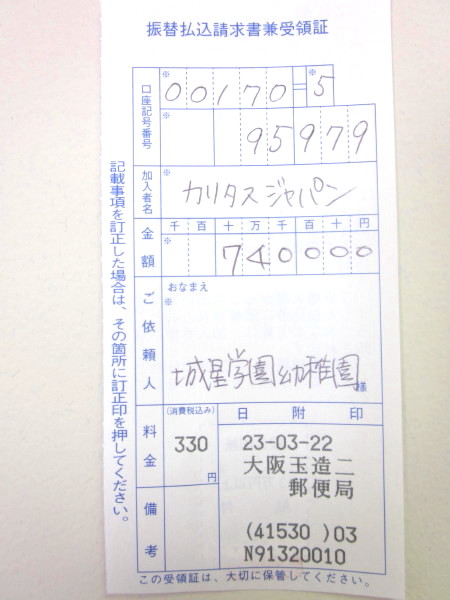 振替払込請求書兼受領証
口座記号番号
※ 00170=※5
※ 95979
加入者名
※ カリタスジャパン
金額
千 百 十 万 千 百 十 円
※ 740000
ご依頼人
おなまえ
※
城星学園幼稚園様
料金
(消費税込み)
330
円
備考
日附印
23-03-22
大阪玉造二
郵便局
(41530 )03
N91320010
記載事項を訂正した場合は、その箇所に訂正印を押してください。
この受領証は、大切に保管してください。